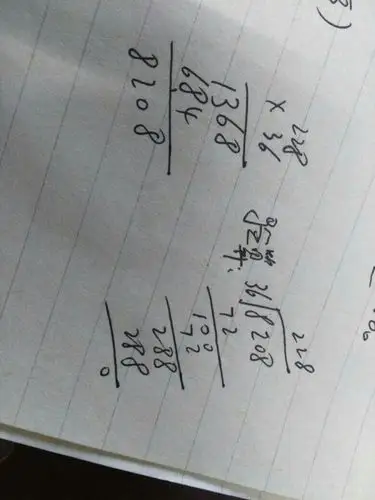 228
× 36
1368
684
8208
验算:
228
36√8208
72
100
72
288
288
0